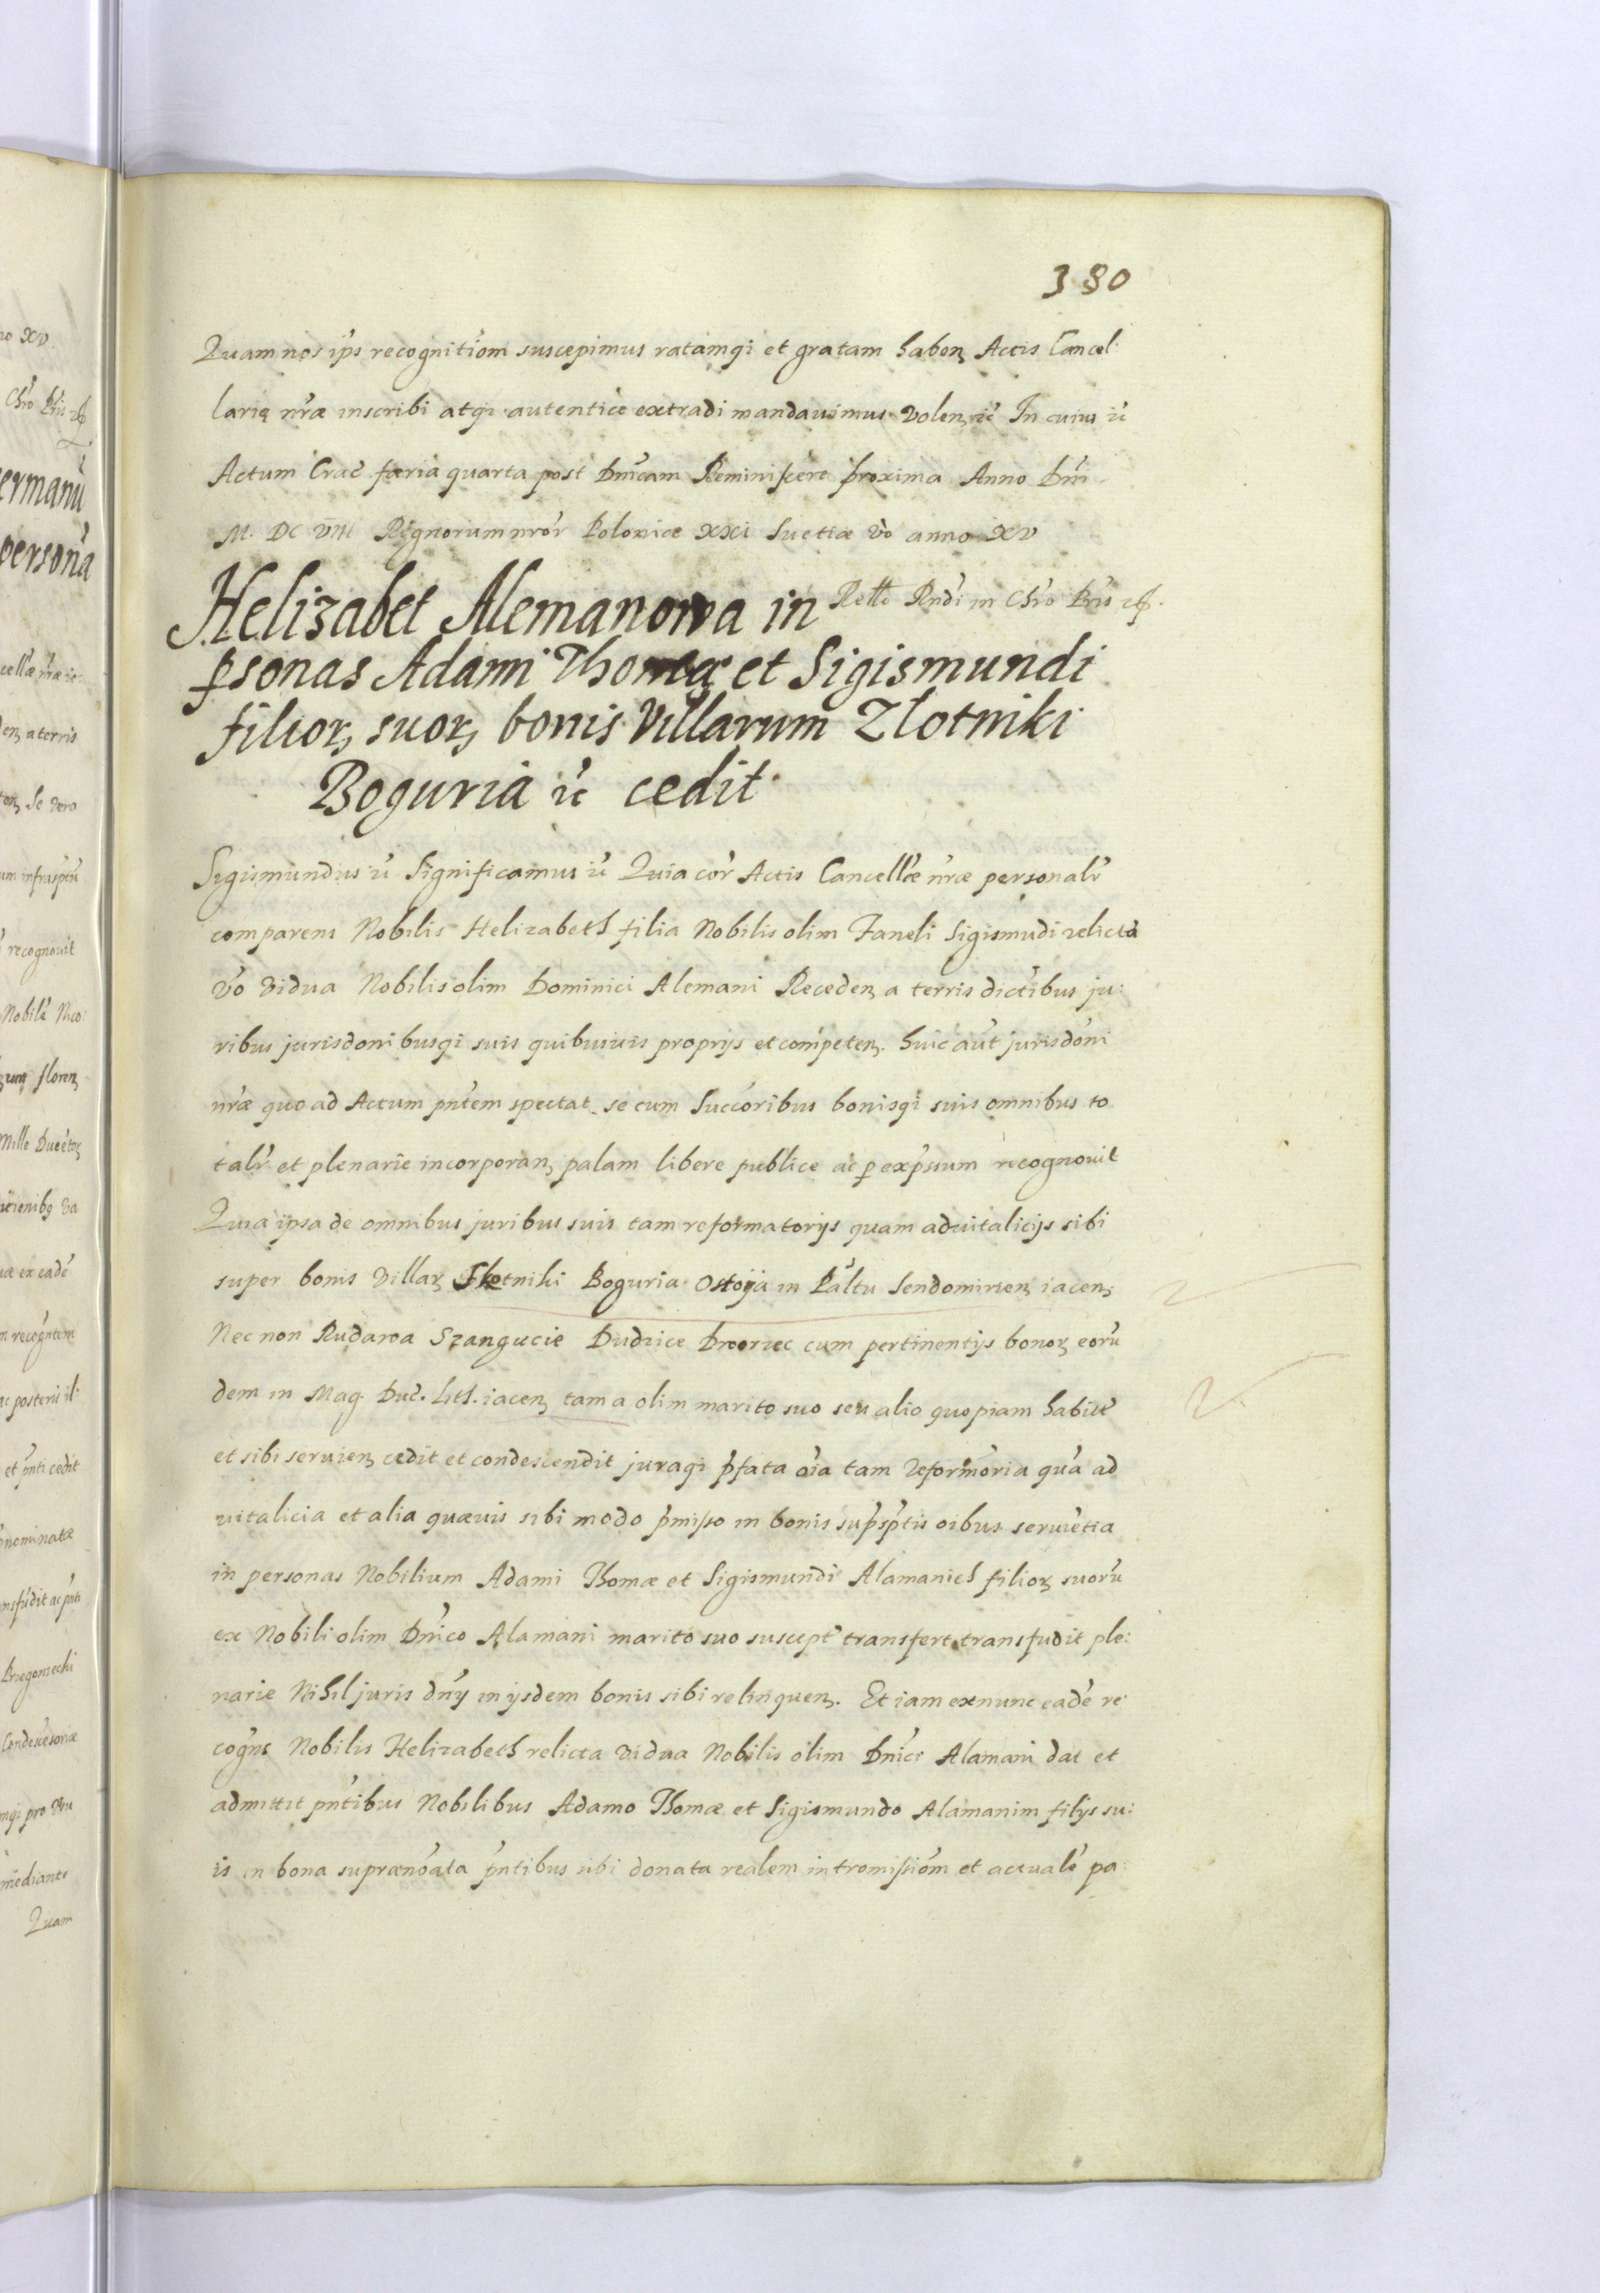 380
Quam nos ips recognitiom suscepimus ratamqi et gratam haben Actis Cancel:
lariæ nræ inscribi atqi autentice extradi mandauimus volen, ic In cuius ic
Actum Crac færia quarta post Dnicam Reminiscere proxima Anno Dni
M. DC VIII Regnorum nror Poloniæ XXI Suetiæ vo anno XV
Helizabet Alemanowa in Rello Rndi in Chro Pris
psonas Adami Thomæ et Sigismundi
filior, suor, bonis Villarum Zlotniki
Boguria ic cedit
Sigismundus ic Significamus ic Quia cor Actis Cancellæ nræ personalr
comparens Nobilis Helizabeth filia Nobilis olim Faneli Sigismudi relicta
vo vidua Nobilis olim Dominici Alemani Receden, a terris dictibus ju:
ribus jurisdonibusqi suis quibusuis proprijs et competen, huic aut jurisdoni
nræ quo ad Actum pntem spectat se cum Succoribus bonisqi suis omnibus to
talr et plenarie incorporan, palam libere publice ac p expsum recognouit
Quia ipsa de omnibus juribus suis tam reformatorijs quam aduitalicijs sibi
super bonis villar, Slotniki Boguria Ostoija in Paltu Sendomirien, iacen,
Nec non Rudawa Szangucie Dudzice Dworzec cum pertinentijs bonor, eoru
dem in Mag. Duc. Lith. iacen, tam a olim marito suo seu alio quopiam habit
et sibi seruien, cedit et condescendit juraqi pfata oia tam reformoria qua ad
uitalicia et alia quæuis sibi modo pmisso in bonis supsptis oibus seruietia
in personas Nobilium Adami Thomæ et Sigismundi Alamanich filior, suoru
ex Nobili olim Dnico Alamani marito suo suscept transfert transfudit ple:
narie Nihil juris dnij in ijsdem bonis sibi relinquen,. Et iam exnunc eade re
cogns Nobilis Helizabeth relicta vidua Nobilis olim Dnici Alamani dat et
admittit pntibus Nobilibus Adamo Thomæ et Sigismundo Alamanim filijs su:
is in bona suprænoata pntibus sibi donata realem intromissiom et actuale po: